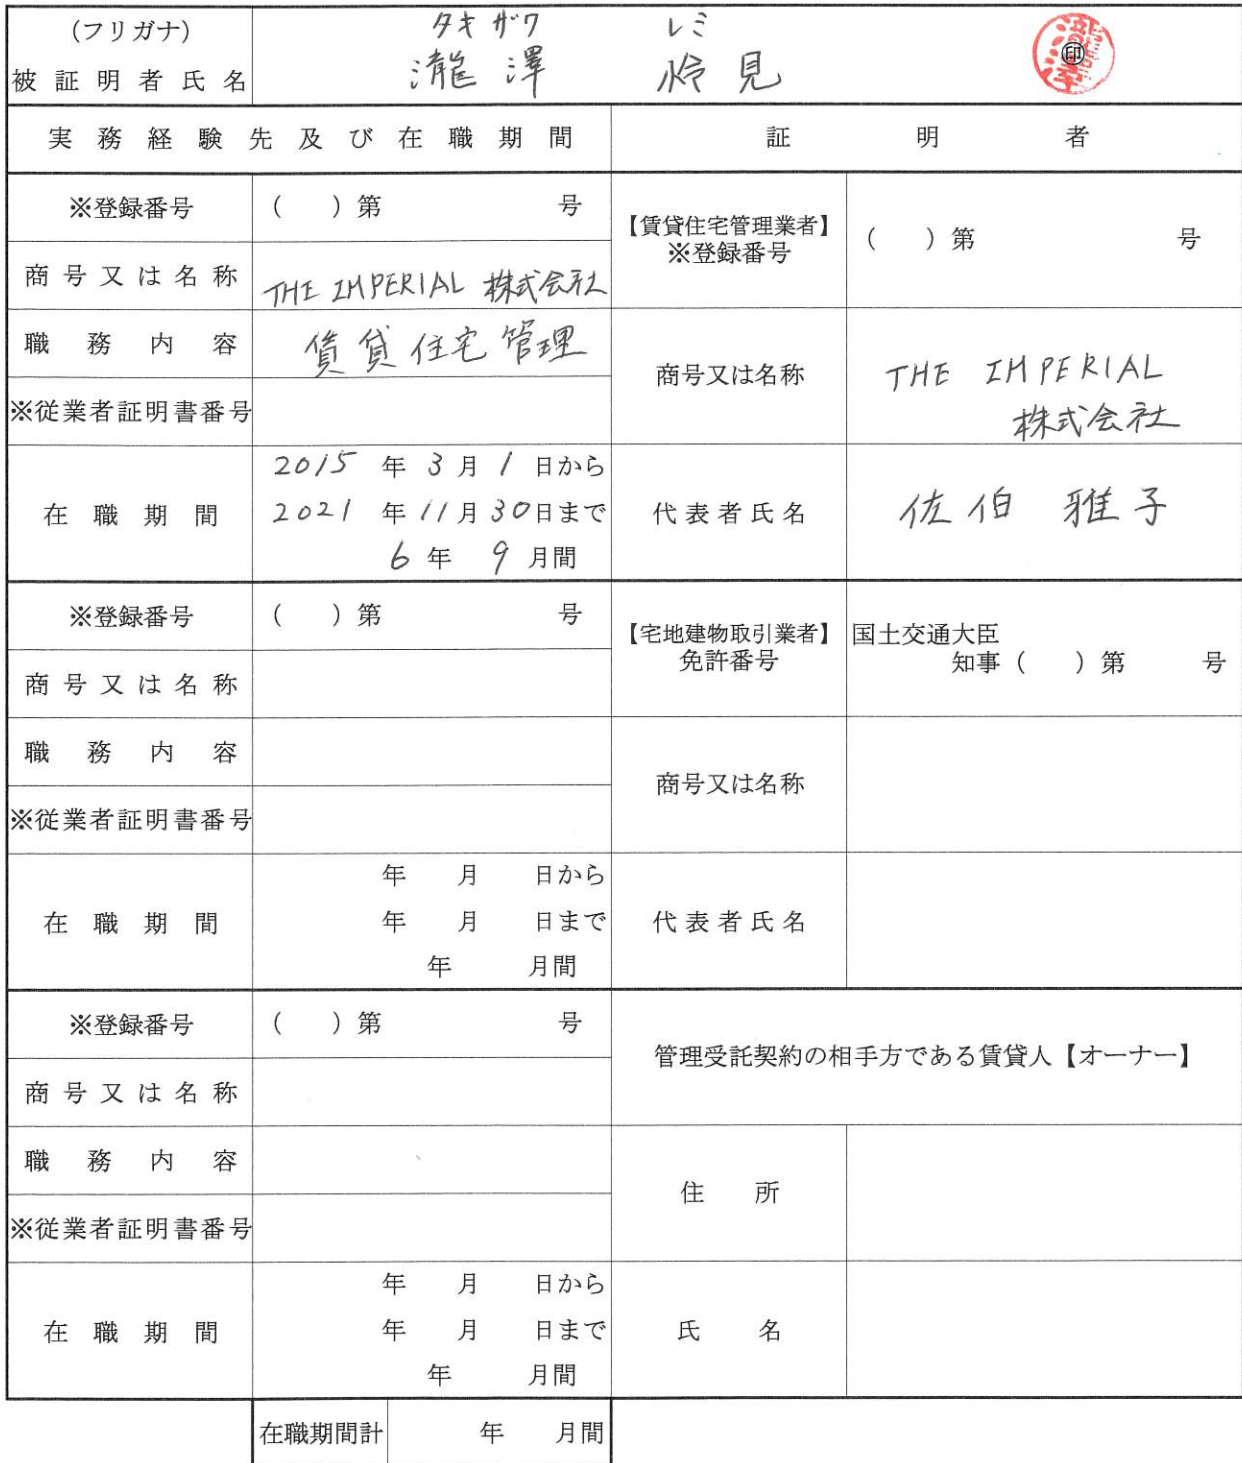 (フリガナ) タキザワ レミ
被証明者氏名 瀧澤 怜見 ㊞
実務経験先及び在職期間 証明者
※登録番号 ( )第 号
【賃貸住宅管理業者】
※登録番号 ( )第 号
商号又は名称 THE IMPERIAL 株式会社
職務内容 賃貸住宅管理
商号又は名称 THE IMPERIAL
株式会社
※従業者証明書番号
在職期間 2015年3月1日から
2021年11月30日まで
6年 9月間
代表者氏名 佐伯 雅子
※登録番号 ( )第 号
【宅地建物取引業者】
免許番号
国土交通大臣
知事( )第 号
商号又は名称
職務内容
商号又は名称
※従業者証明書番号
在職期間 年 月 日から
年 月 日まで
年 月間
代表者氏名
※登録番号 ( )第 号
管理受託契約の相手方である賃貸人【オーナー】
商号又は名称
職務内容
住所
※従業者証明書番号
在職期間 年 月 日から
年 月 日まで
年 月間
氏名
在職期間計 年 月間